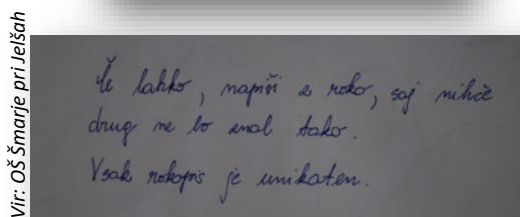 Vir: OŠ Šmarje pri Jelšah
Če lahko, napiši z roko, saj nihče
drug ne bo znal tako.
Vsak rokopis je unikaten.